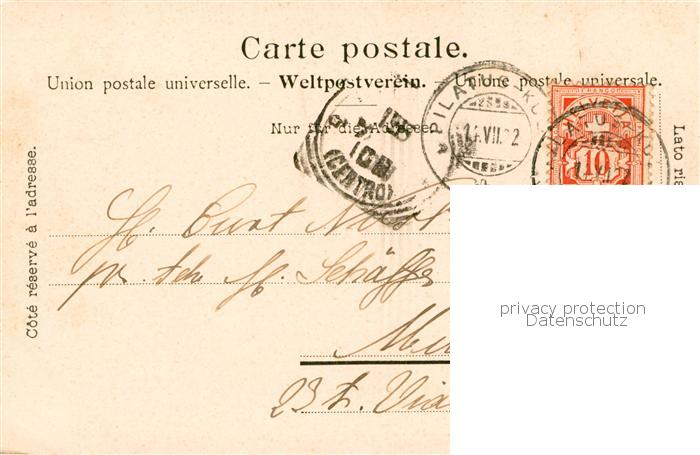 Carte postale.
Union postale universelle. – Weltpostverein. – Unione postale universale.
Nur für die Adresse.
Côté réservé à l'adresse.
Lato ris
PILATUS-KU
VII.02
(CENTRO)
FRANCO
HELVETIA
10
H. Curt
pr. M. Schäffer
23 Via
privacy protection
Datenschutz